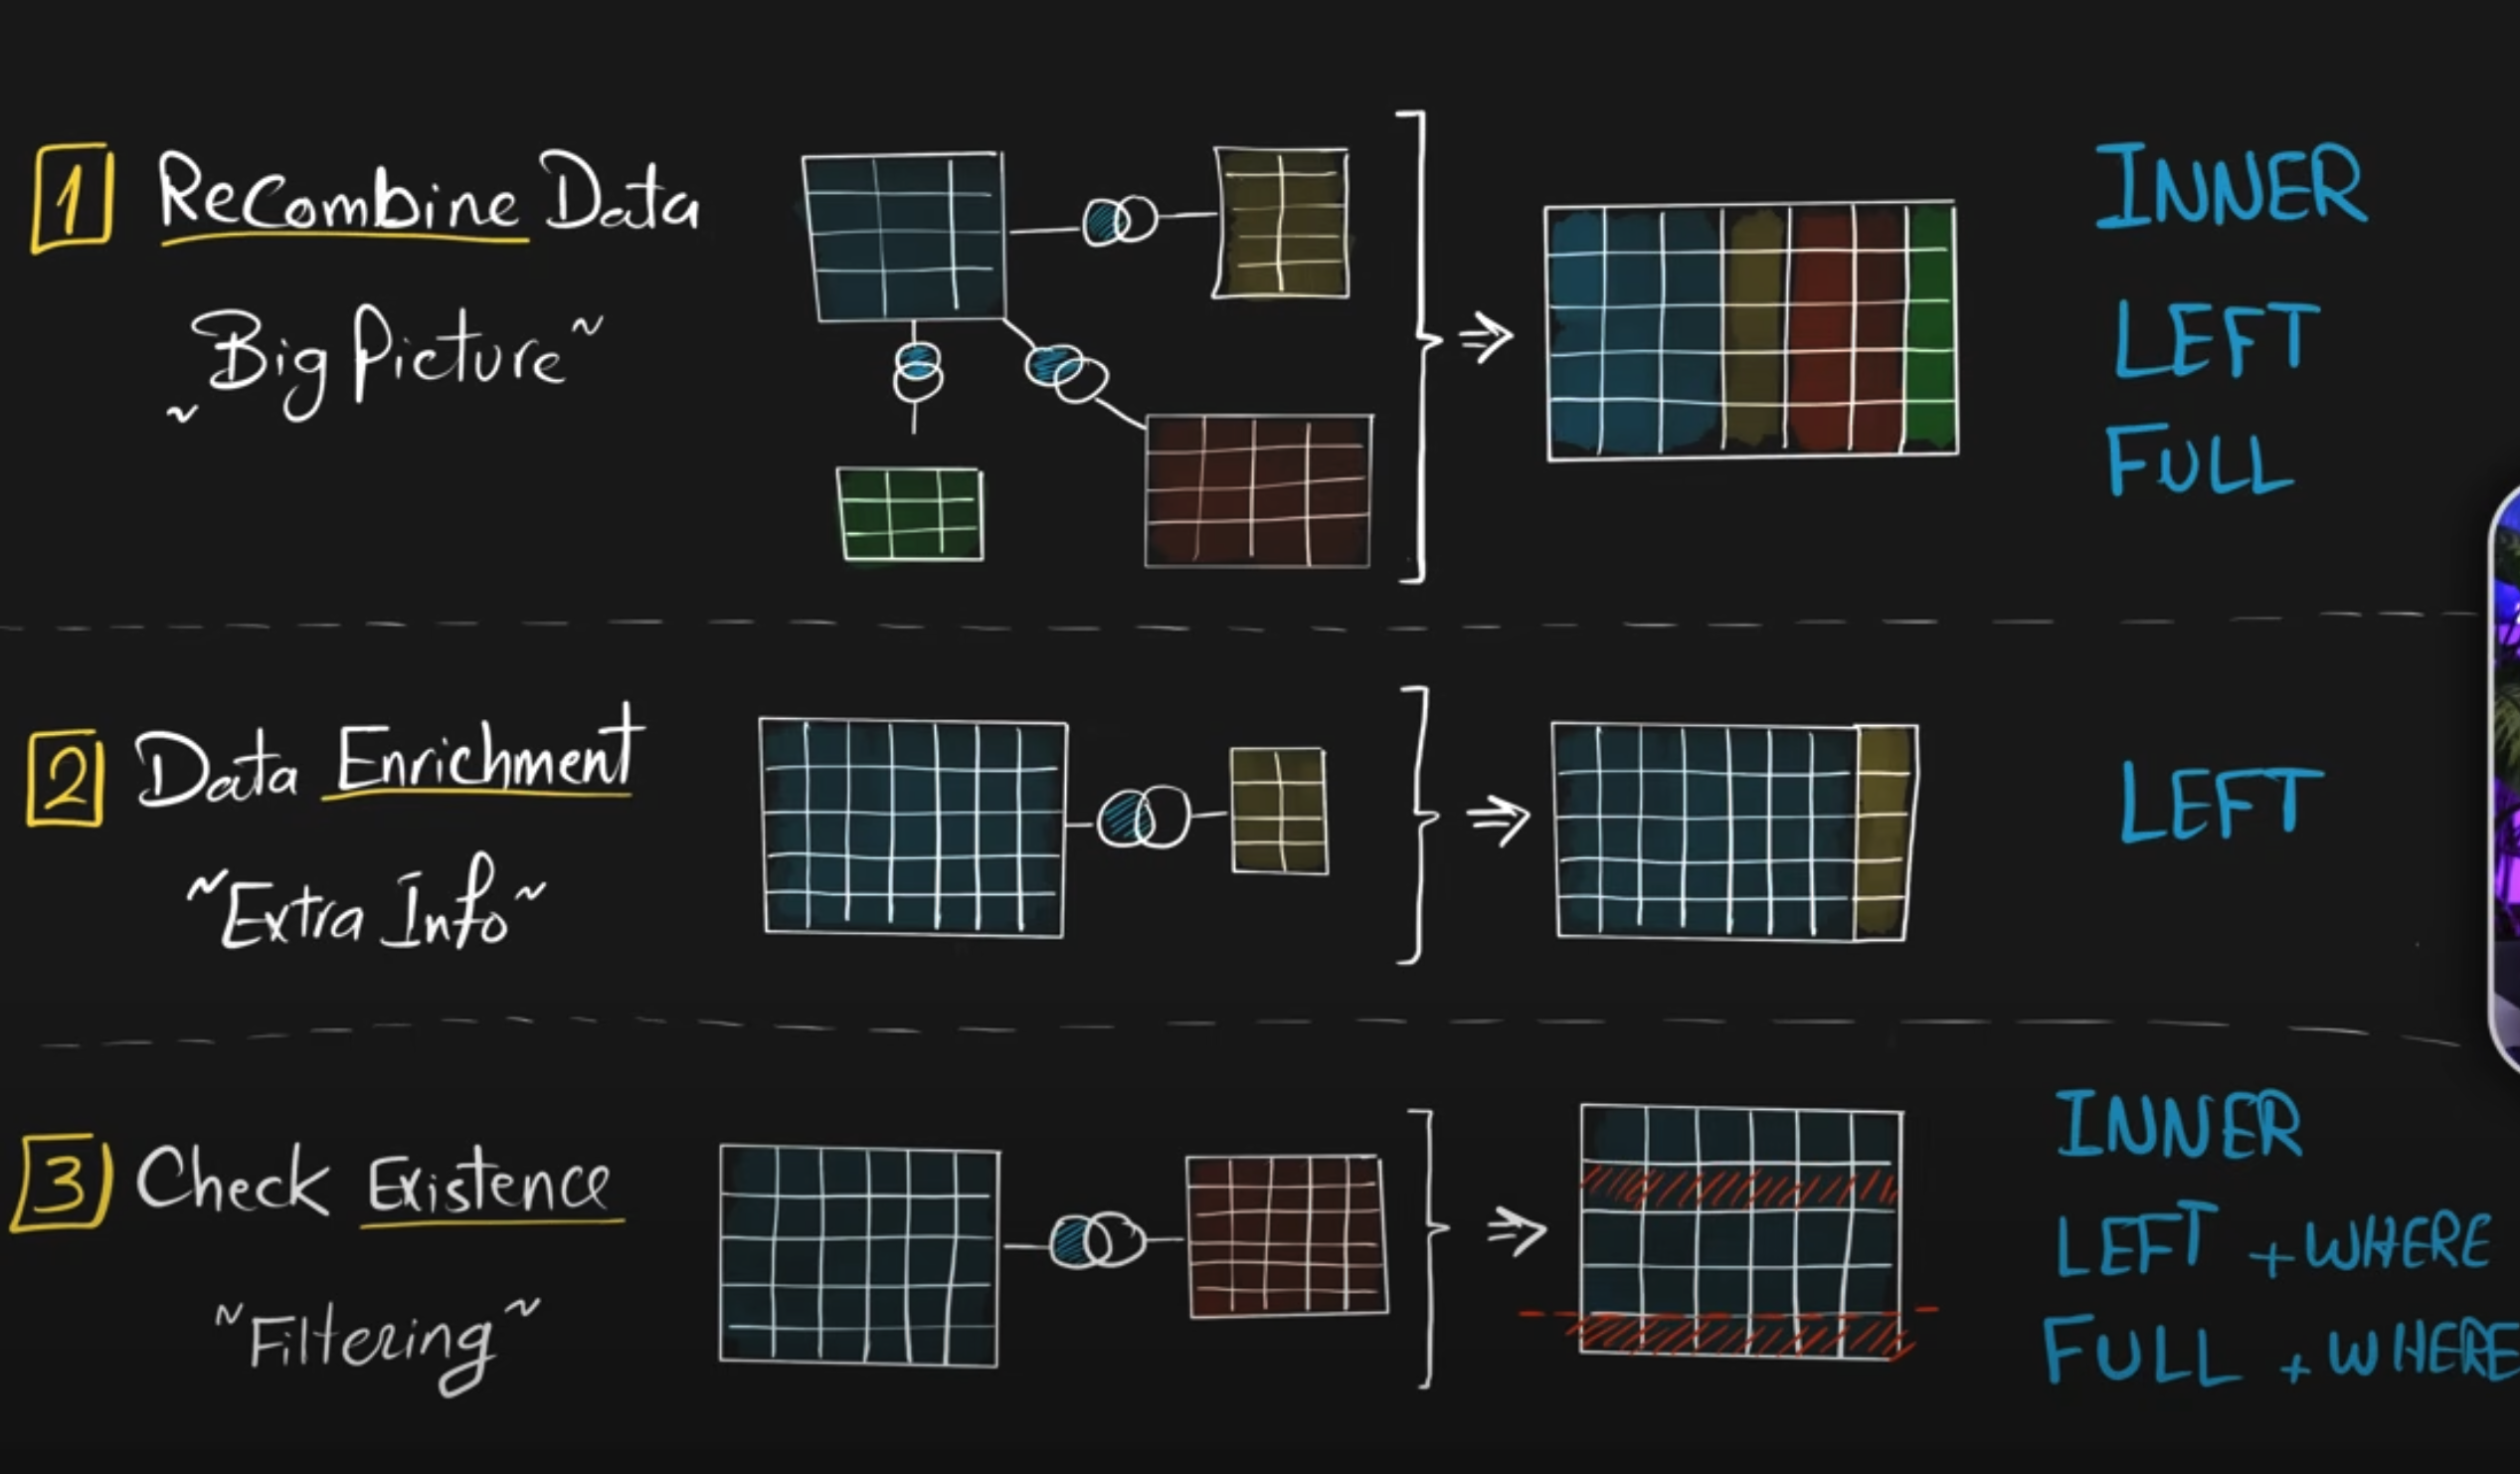 1 ReCombine Data
~ Big Picture ~
INNER
LEFT
FULL
2 Data Enrichment
~ Extra Info ~
LEFT
3 Check Existence
~ Filtering ~
INNER
LEFT + WHERE
FULL + WHERE